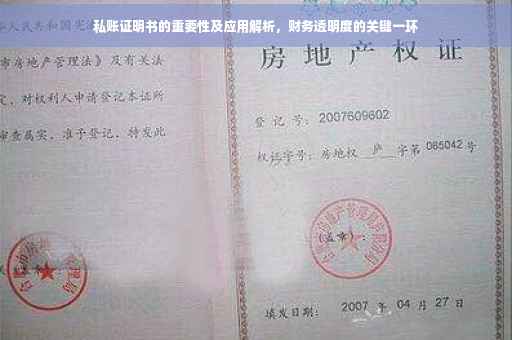 私账证明书的重要性及应用解析，财务透明度的关键一环
人民共和国宪
市房地产管理法》及有关法
定，对权利人申请登记本证所
审查属实，准予登记，特发此
房地产权证
登记号：2007609602
权证字号：房地权 庐 字第 085042 号
(盖章)：
填发日期： 2007 年 04 月 27 日